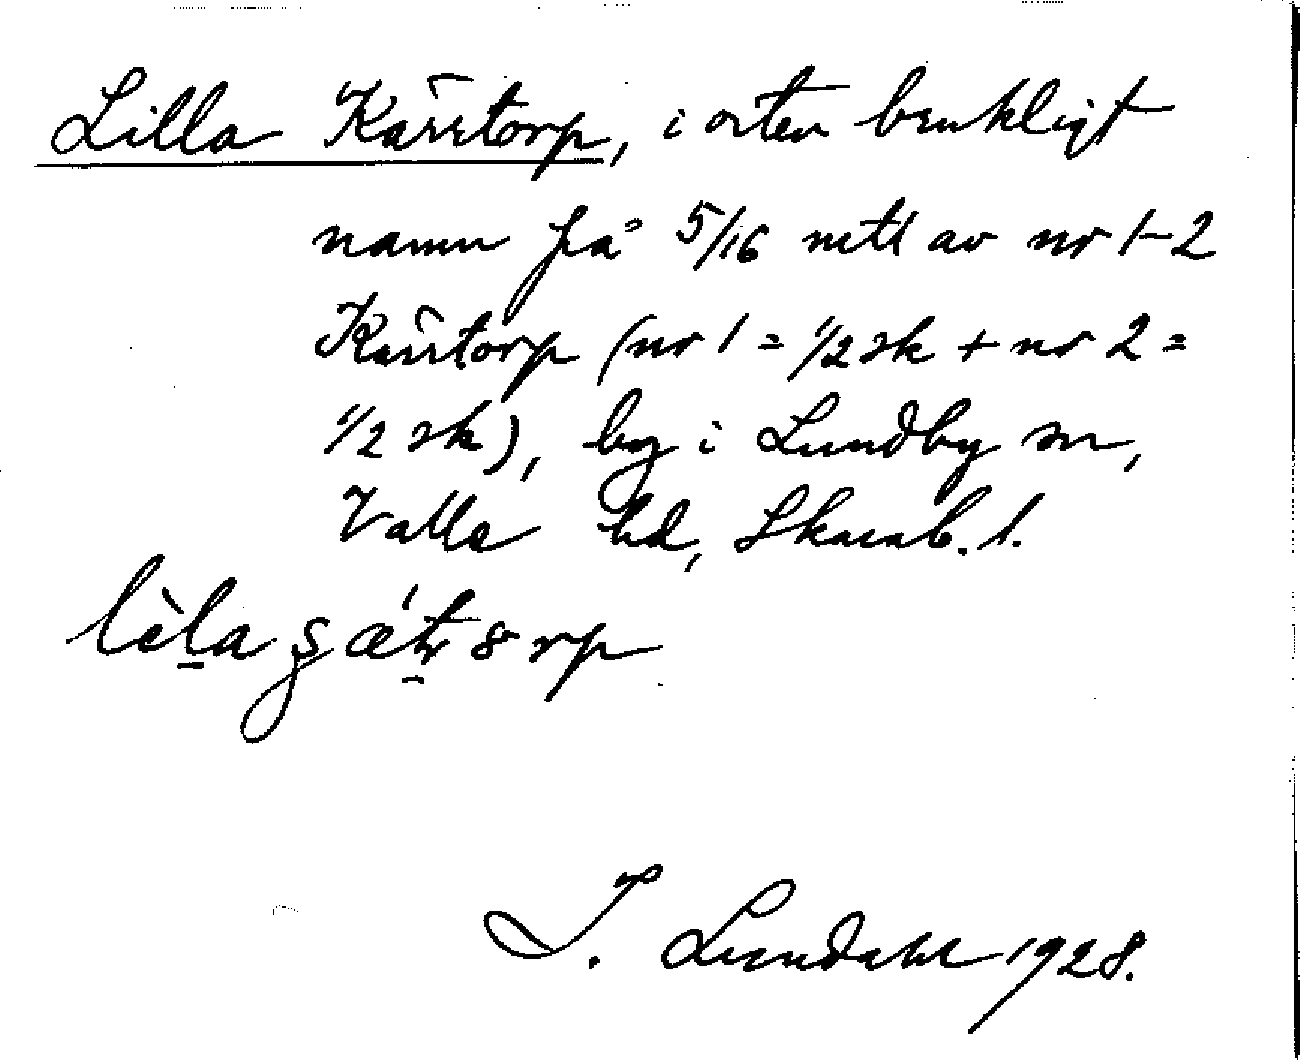 Lilla Kärrtorp, i orten brukligt
namn på 5/16 mtl av nr 1-2
Kärrtorp (nr 1 = 1/2 sk + nr 2 =
1/2 sk), by i Lundby sn,
Valle hd, Skarab. l.
I. Lundahl 1928.